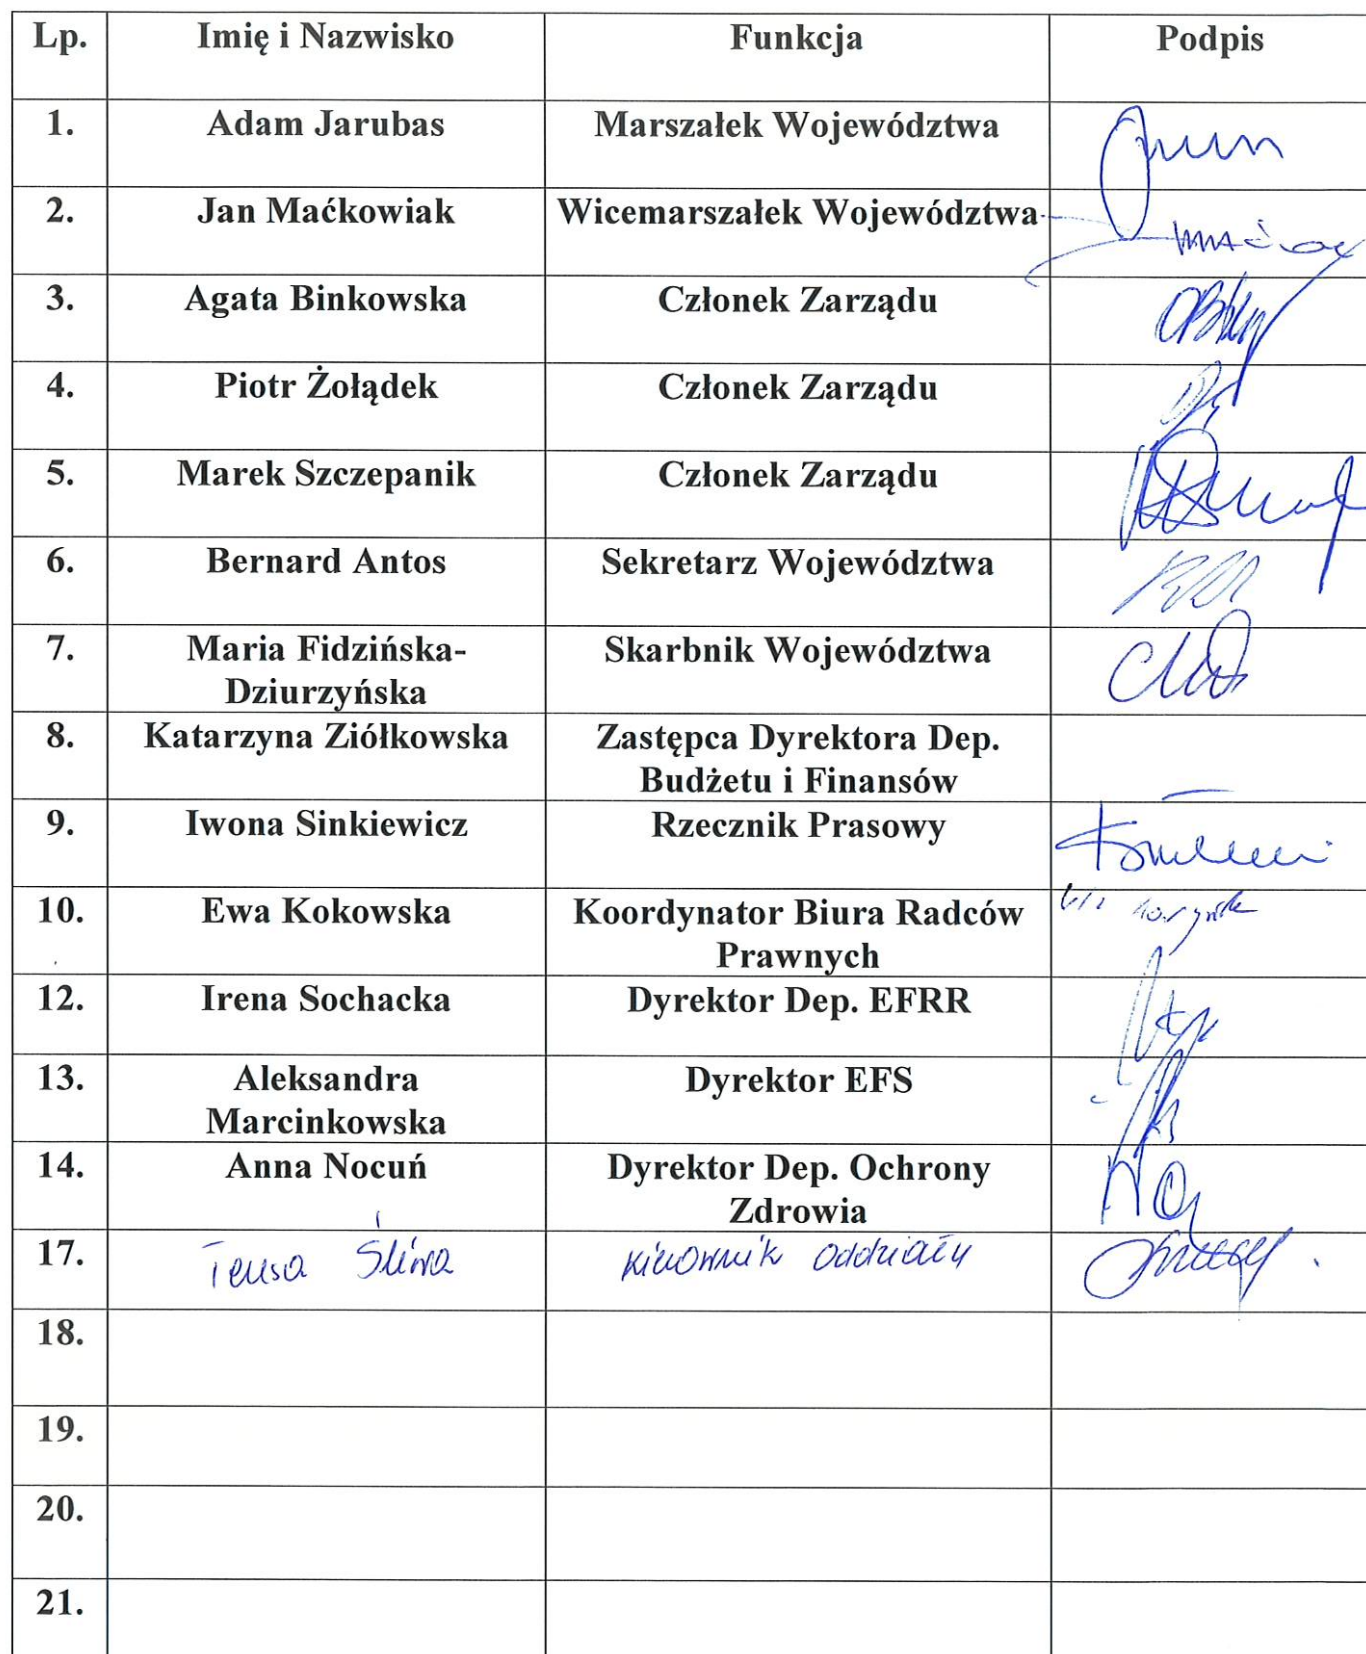 Lp. Imię i Nazwisko Funkcja Podpis
1. Adam Jarubas Marszałek Województwa
2. Jan Maćkowiak Wicemarszałek Województwa
3. Agata Binkowska Członek Zarządu
4. Piotr Żołądek Członek Zarządu
5. Marek Szczepanik Członek Zarządu
6. Bernard Antos Sekretarz Województwa
7. Maria Fidzińska- Skarbnik Województwa
Dziurzyńska
8. Katarzyna Ziółkowska Zastępca Dyrektora Dep.
Budżetu i Finansów
9. Iwona Sinkiewicz Rzecznik Prasowy
10. Ewa Kokowska Koordynator Biura Radców
Prawnych
12. Irena Sochacka Dyrektor Dep. EFRR
13. Aleksandra Dyrektor EFS
Marcinkowska
14. Anna Nocuń Dyrektor Dep. Ochrony
Zdrowia
17. Teresa Śliwa kierownik oddziału
18.
19.
20.
21.